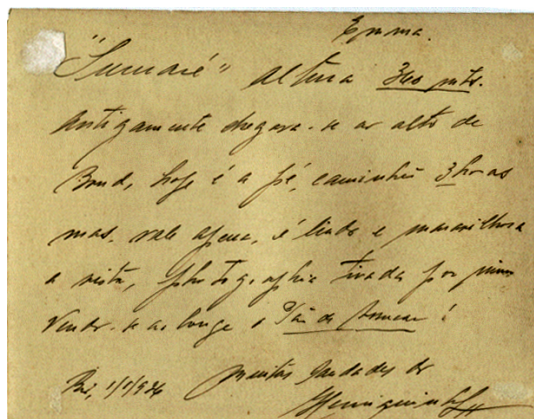 Emma.
"Sumaré" altura 360 mts.
Antigamente chegava-se ao alto de
Bond, hoje é a pé, caminhei 3 horas
mas, vale apena, é lindo e maravilhosa
a vista, photographia tirada por mim
Vendo-se ao longe o Pão de Assucar!
Rio, 1/1/936 muitas saudades do